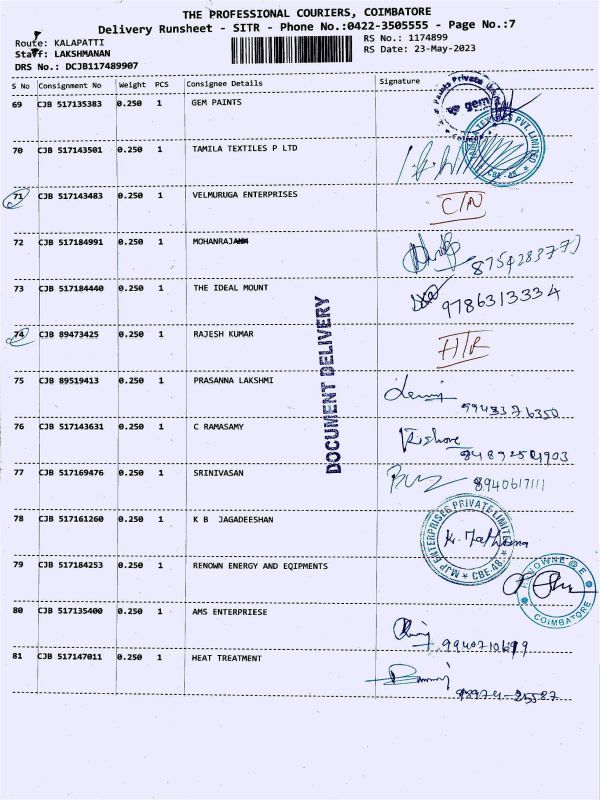 THE PROFESSIONAL COURIERS, COIMBATORE
Delivery Runsheet - SITR - Phone No.:0422-3505555 - Page No.:7
Route: KALAPATTI RS No.: 1174899
Staff: LAKSHMANAN RS Date: 23-May-2023
DRS No.: DCJB117489907
S No Consignment No Weight PCS Consignee Details Signature
69 CJB 517135383 0.250 1 GEM PAINTS
gem
70 CJB 517143501 0.250 1 TAMILA TEXTILES P LTD
TEXTILES PVT. LIMITED CBE-48
71 CJB 517143483 0.250 1 VELMURUGA ENTERPRISES C/N
72 CJB 517184991 0.250 1 MOHANRAJ
73 CJB 517184440 0.250 1 THE IDEAL MOUNT 9786313334
DOCUMENT DELIVERY
74 CJB 89473425 0.250 1 RAJESH KUMAR
75 CJB 89519413 0.250 1 PRASANNA LAKSHMI
9943376350
76 CJB 517143631 0.250 1 C RAMASAMY Kishore
77 CJB 517169476 0.250 1 SRINIVASAN 8940617111
78 CJB 517161260 0.250 1 K B JAGADEESHAN
MJP ENTERPRISES PRIVATE LIMITED CBE-48
79 CJB 517184253 0.250 1 RENOWN ENERGY AND EQIPMENTS
COIMBATORE
80 CJB 517135400 0.250 1 AMS ENTERPRIESE
9940710699
81 CJB 517147011 0.250 1 HEAT TREATMENT